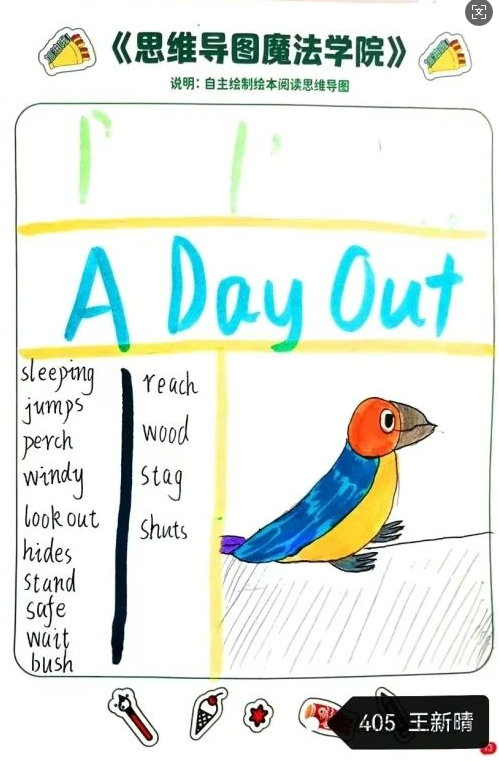 《思维导图魔法学院》
说明：自主绘制绘本阅读思维导图
A Day Out
sleeping
jumps
perch
windy
look out
hides
stand
safe
wait
bush
reach
wood
stag
shuts
405 王新晴